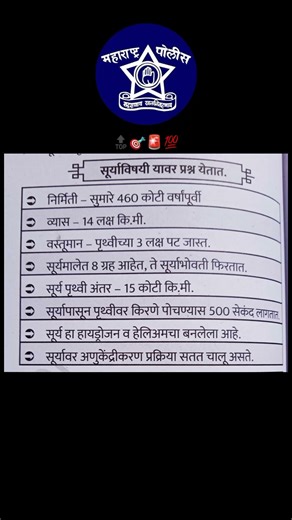 महाराष्ट्र पोलीस
सद्रक्षणाय खलनिग्रहणाय
TOP
100
सूर्याविषयी यावर प्रश्न येतात.
निर्मिती – सुमारे 460 कोटी वर्षांपूर्वी
व्यास – 14 लक्ष कि.मी.
वस्तूमान – पृथ्वीच्या 3 लक्ष पट जास्त.
सूर्यमालेत 8 ग्रह आहेत, ते सूर्याभोवती फिरतात.
सूर्य पृथ्वी अंतर – 15 कोटी कि.मी.
सूर्यापासून पृथ्वीवर किरणे पोचण्यास 500 सेकंद लागतात.
सूर्य हा हायड्रोजन व हेलिअमचा बनलेला आहे.
सूर्यावर अणुकेंद्रीकरण प्रक्रिया सतत चालू असते.